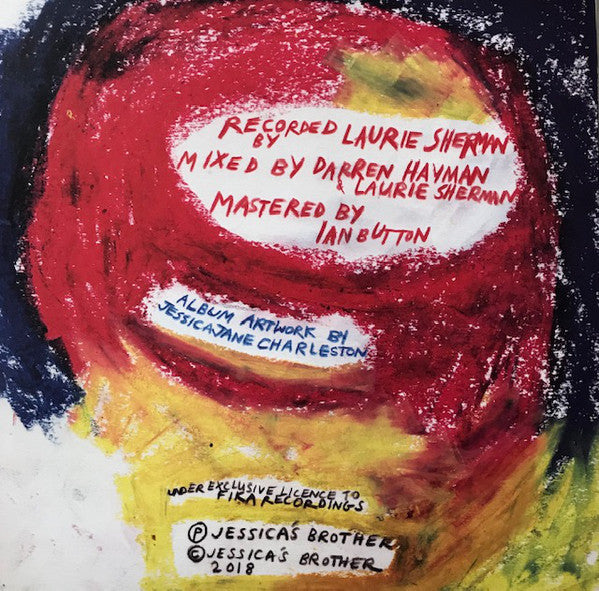 RECORDED LAURIE SHERMAN
BY
MIXED BY DARREN HAYMAN
& LAURIE SHERMAN
MASTERED BY
IAN BUTTON
ALBUM ARTWORK BY
JESSICA JANE CHARLESTON
UNDER EXCLUSIVE LICENCE TO
FIKA RECORDINGS
Ⓟ JESSICA'S BROTHER
© JESSICA'S BROTHER
2018